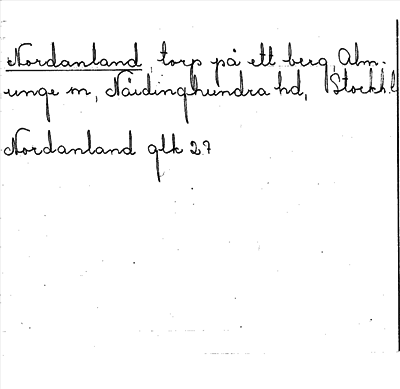 Nordanland, torp på ett berg, Alm-
unge sn, Närdinghundra hd, Stockh.l
Nordanland glk 27